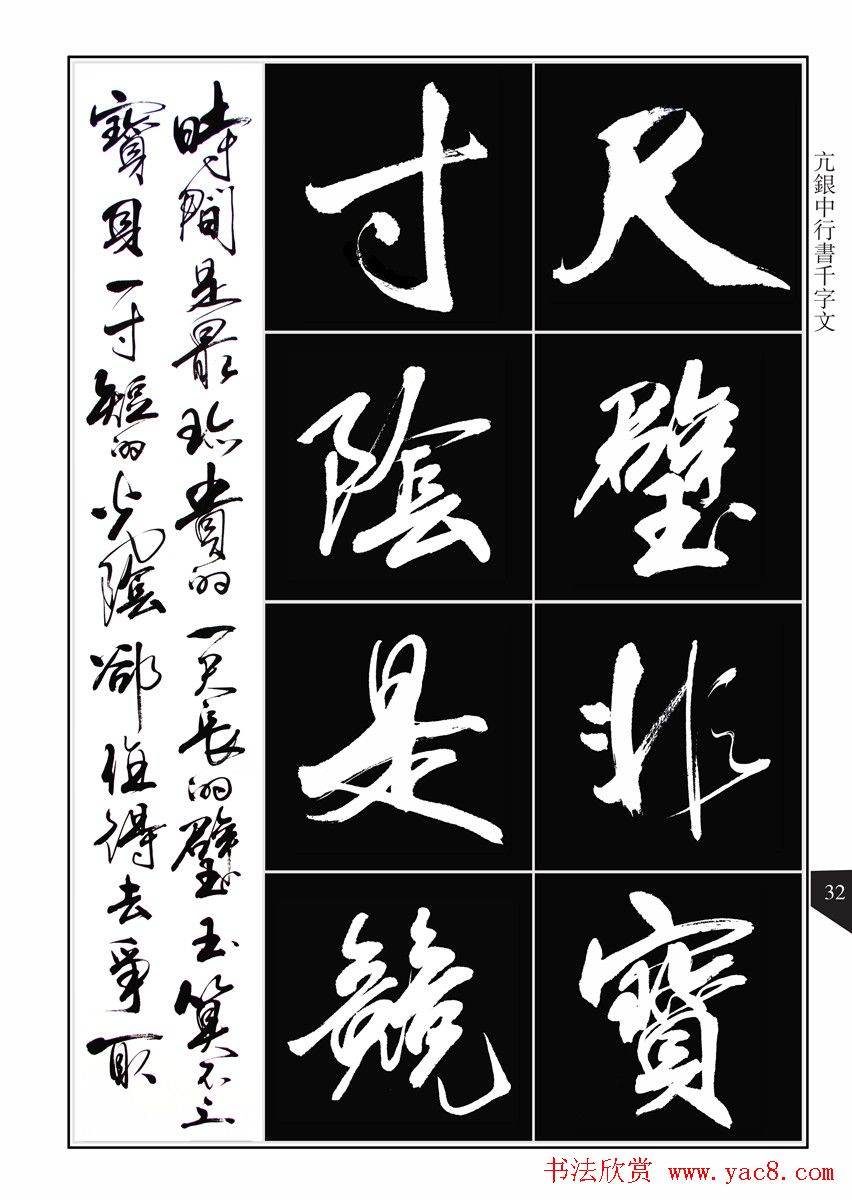 亢銀中行書千字文
尺璧非寶
寸陰是競
時間是最珍貴的一尺長的璧玉算不上
寶貝一寸短的光陰卻值得去爭取
32
书法欣赏 www.yac8.com